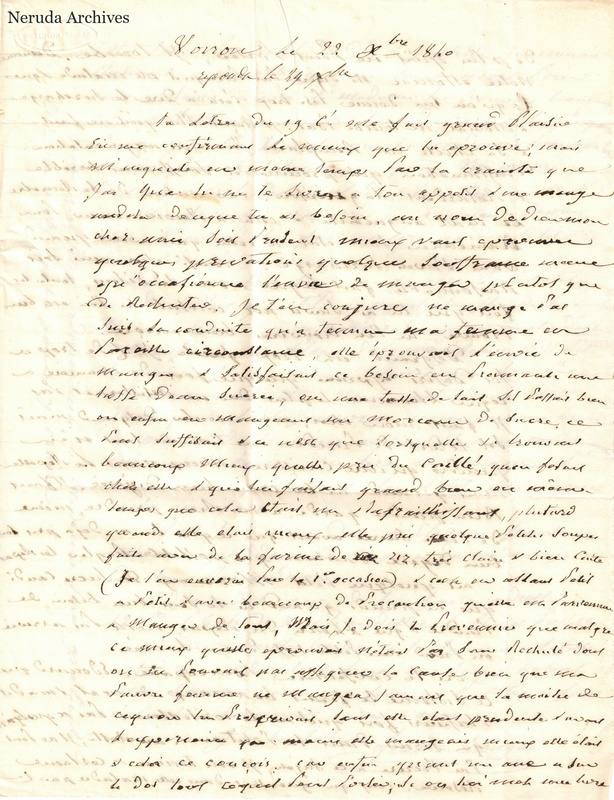 Neruda Archives
Voiron le 22 Xbre 1840
repondu le 29 Xbre
ta Lettre du 19 Ct me fait grand Plaisir
en me confirmant le mieux que tu eprouve, mais
m'inquiete en meme temps par la crainte que
j'ai que tu ne te livre a ton appetit & ne mange
audela de ce que tu as besoin, au nom de dieu mon
cher ami sois prudent mieux vaut eprouver
quelques privations, quelque souffrance meme
qu'occasionne l'envie de manger plutot que
de Rechuter. Je t'en conjure ne mange pas
suis la conduite qu'a tenue ma femme en
pareille circonstance, elle éprouvait l'envie de
manger & satisfaisait ce besoin en prenant une
tasse d'eau sucrée, ou une tasse de lait
ou enfin en mangeant un morceau de sucre, ce
peut suffisait & ce n'est que lorsquelle se trouvait
beaucoup mieux quelle prit du Caillé, quon faisait
chez elle & qui lui faisait grand bien en même
temps que cela etait un Rafraichissant, plutard
quand elle etait mieux elle prit quelque petites soupes
faite avec de la farine de riz très claire & bien cuite
(Je t'en enverrai par la 1ere occasion) & ce en allant petit
a petit & avec beaucoup de precaution quelle est parvenue
a manger de tout, Mais, je dois te prevenir que malgré
ce mieux quelle eprouvait n'etait pas sans Rechute dont
on ne pouvait pas assigner la cause bien que ma
pauvre femme ne mangea jamais que la moitié de
ce quon lui prescrivait, tant elle etait prudente & avait
l'experience que moins elle mangeait mieux elle était
& cela ce conçois. car enfin quand un ane a sur
le dos tout ce quil peut porter, si on lui met une livre